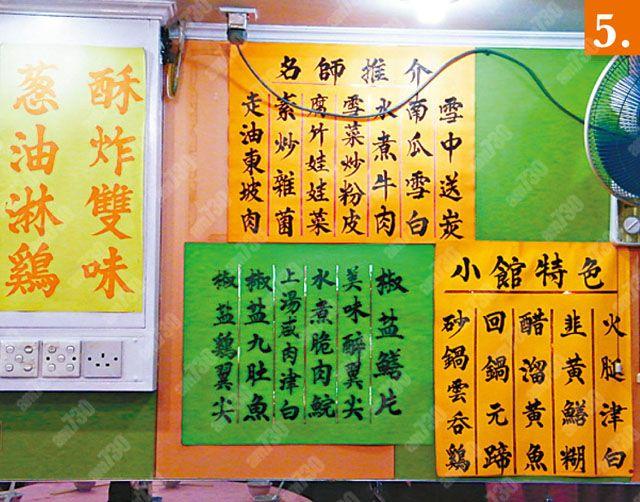 5.
酥炸雙味
葱油淋鷄
名師推介
雪中送炭
南瓜雪白
水煮牛肉
雪菜炒粉皮
腐竹娃娃菜
素炒雜菌
走油東坡肉
椒盐鱔片
美味醉翼尖
水煮脆肉鯇
上湯或肉津白
椒盐九肚魚
椒盐鷄翼尖
小館特色
火腿津白
韭黃鱔糊
醋溜黃魚
回鍋元蹄
砂鍋雲吞鷄
am730